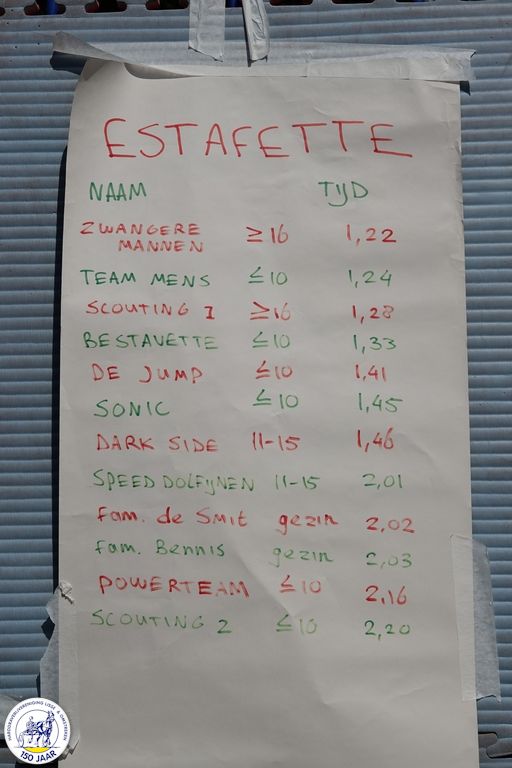 ESTAFETTE
NAAM TIJD
ZWANGERE
MANNEN ≥16 1,22
TEAM MENS ≤10 1,24
SCOUTING 1 ≥16 1,28
BESTAVETTE ≤10 1,33
DE JUMP ≤10 1,41
SONIC ≤10 1,45
DARK SIDE 11-15 1,46
SPEED DOLFIJNEN 11-15 2,01
Fam. de Smit gezin 2,02
Fam. Bennis gezin 2,03
POWERTEAM ≤10 2,16
SCOUTING 2 ≤10 2,20
150 JAAR